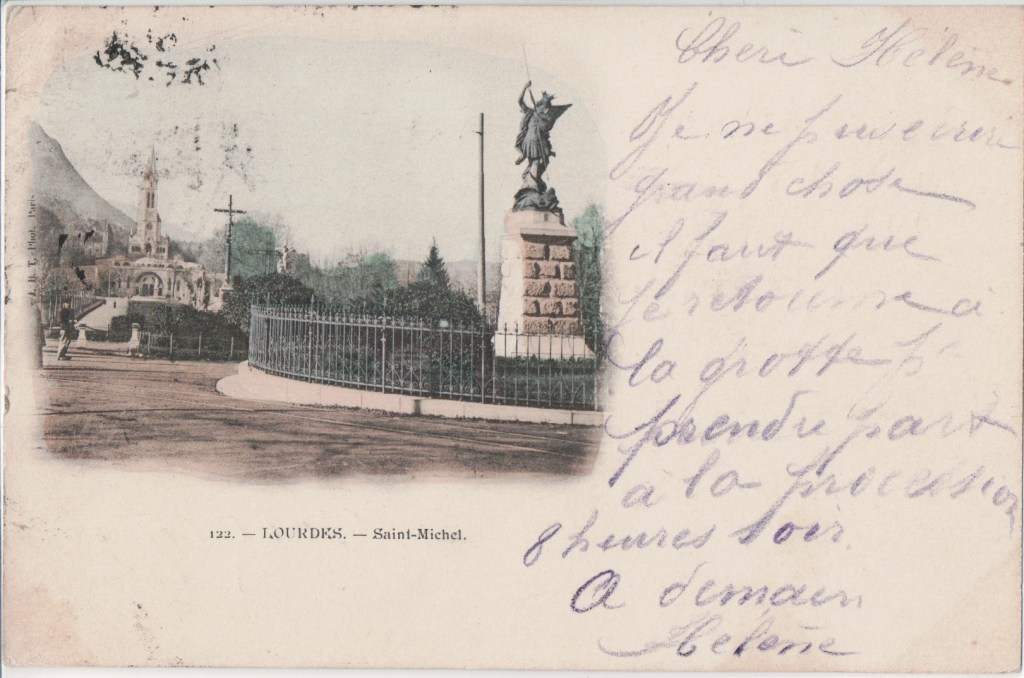 Cheri Hélène
Je ne puis ecrire
grand chose
il faut que
je retourne à
la grotte pr
prendre part
à la procession
8 heures soir.
A demain
Hélène
122. — LOURDES. — Saint-Michel.
Phot. Paris